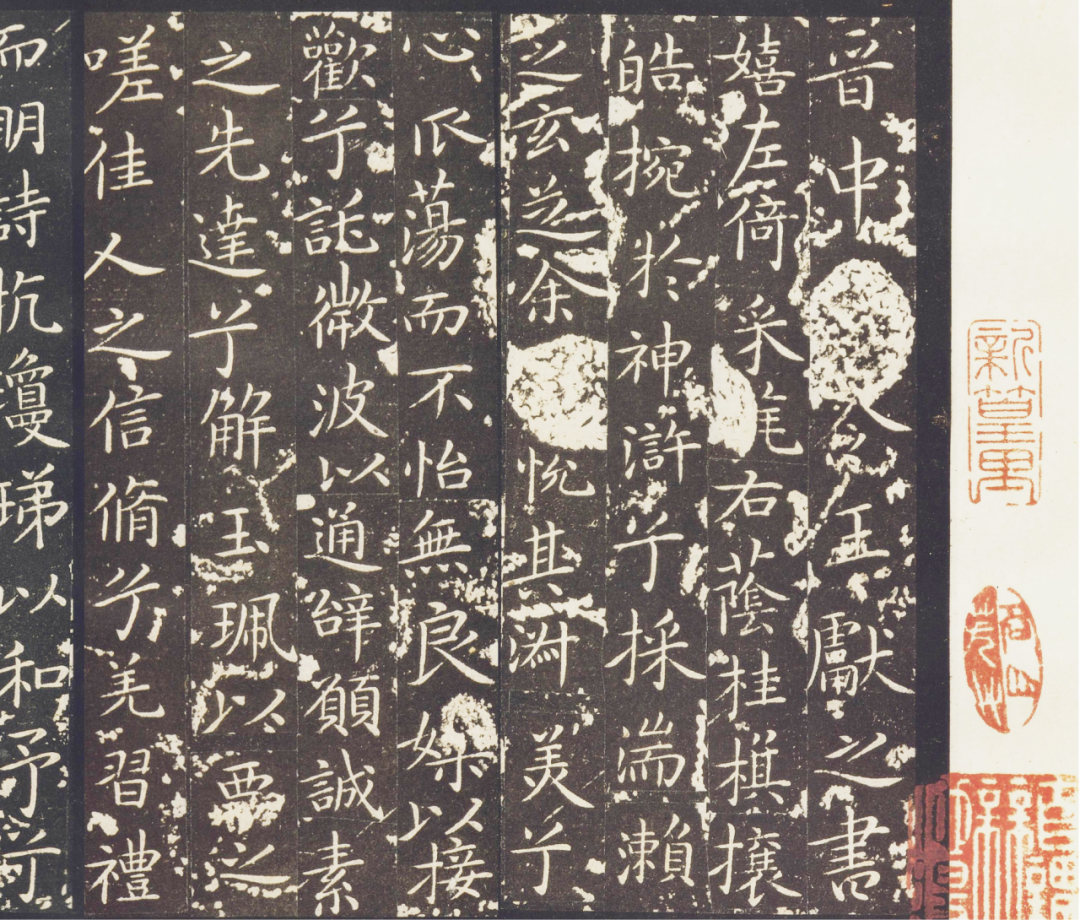 晉中令王獻之書
嬉左倚采旄右蔭桂棋攘
皓捥於神滸兮採湍瀨
之玄芝余悅其淑美兮
心爪蕩而不怡無良媒以接
歡兮託微波以通辞願誠素
之先達兮解玉珮以要之
嗟佳人之信脩兮羌習禮
而明詩抗瓊珶以和予兮